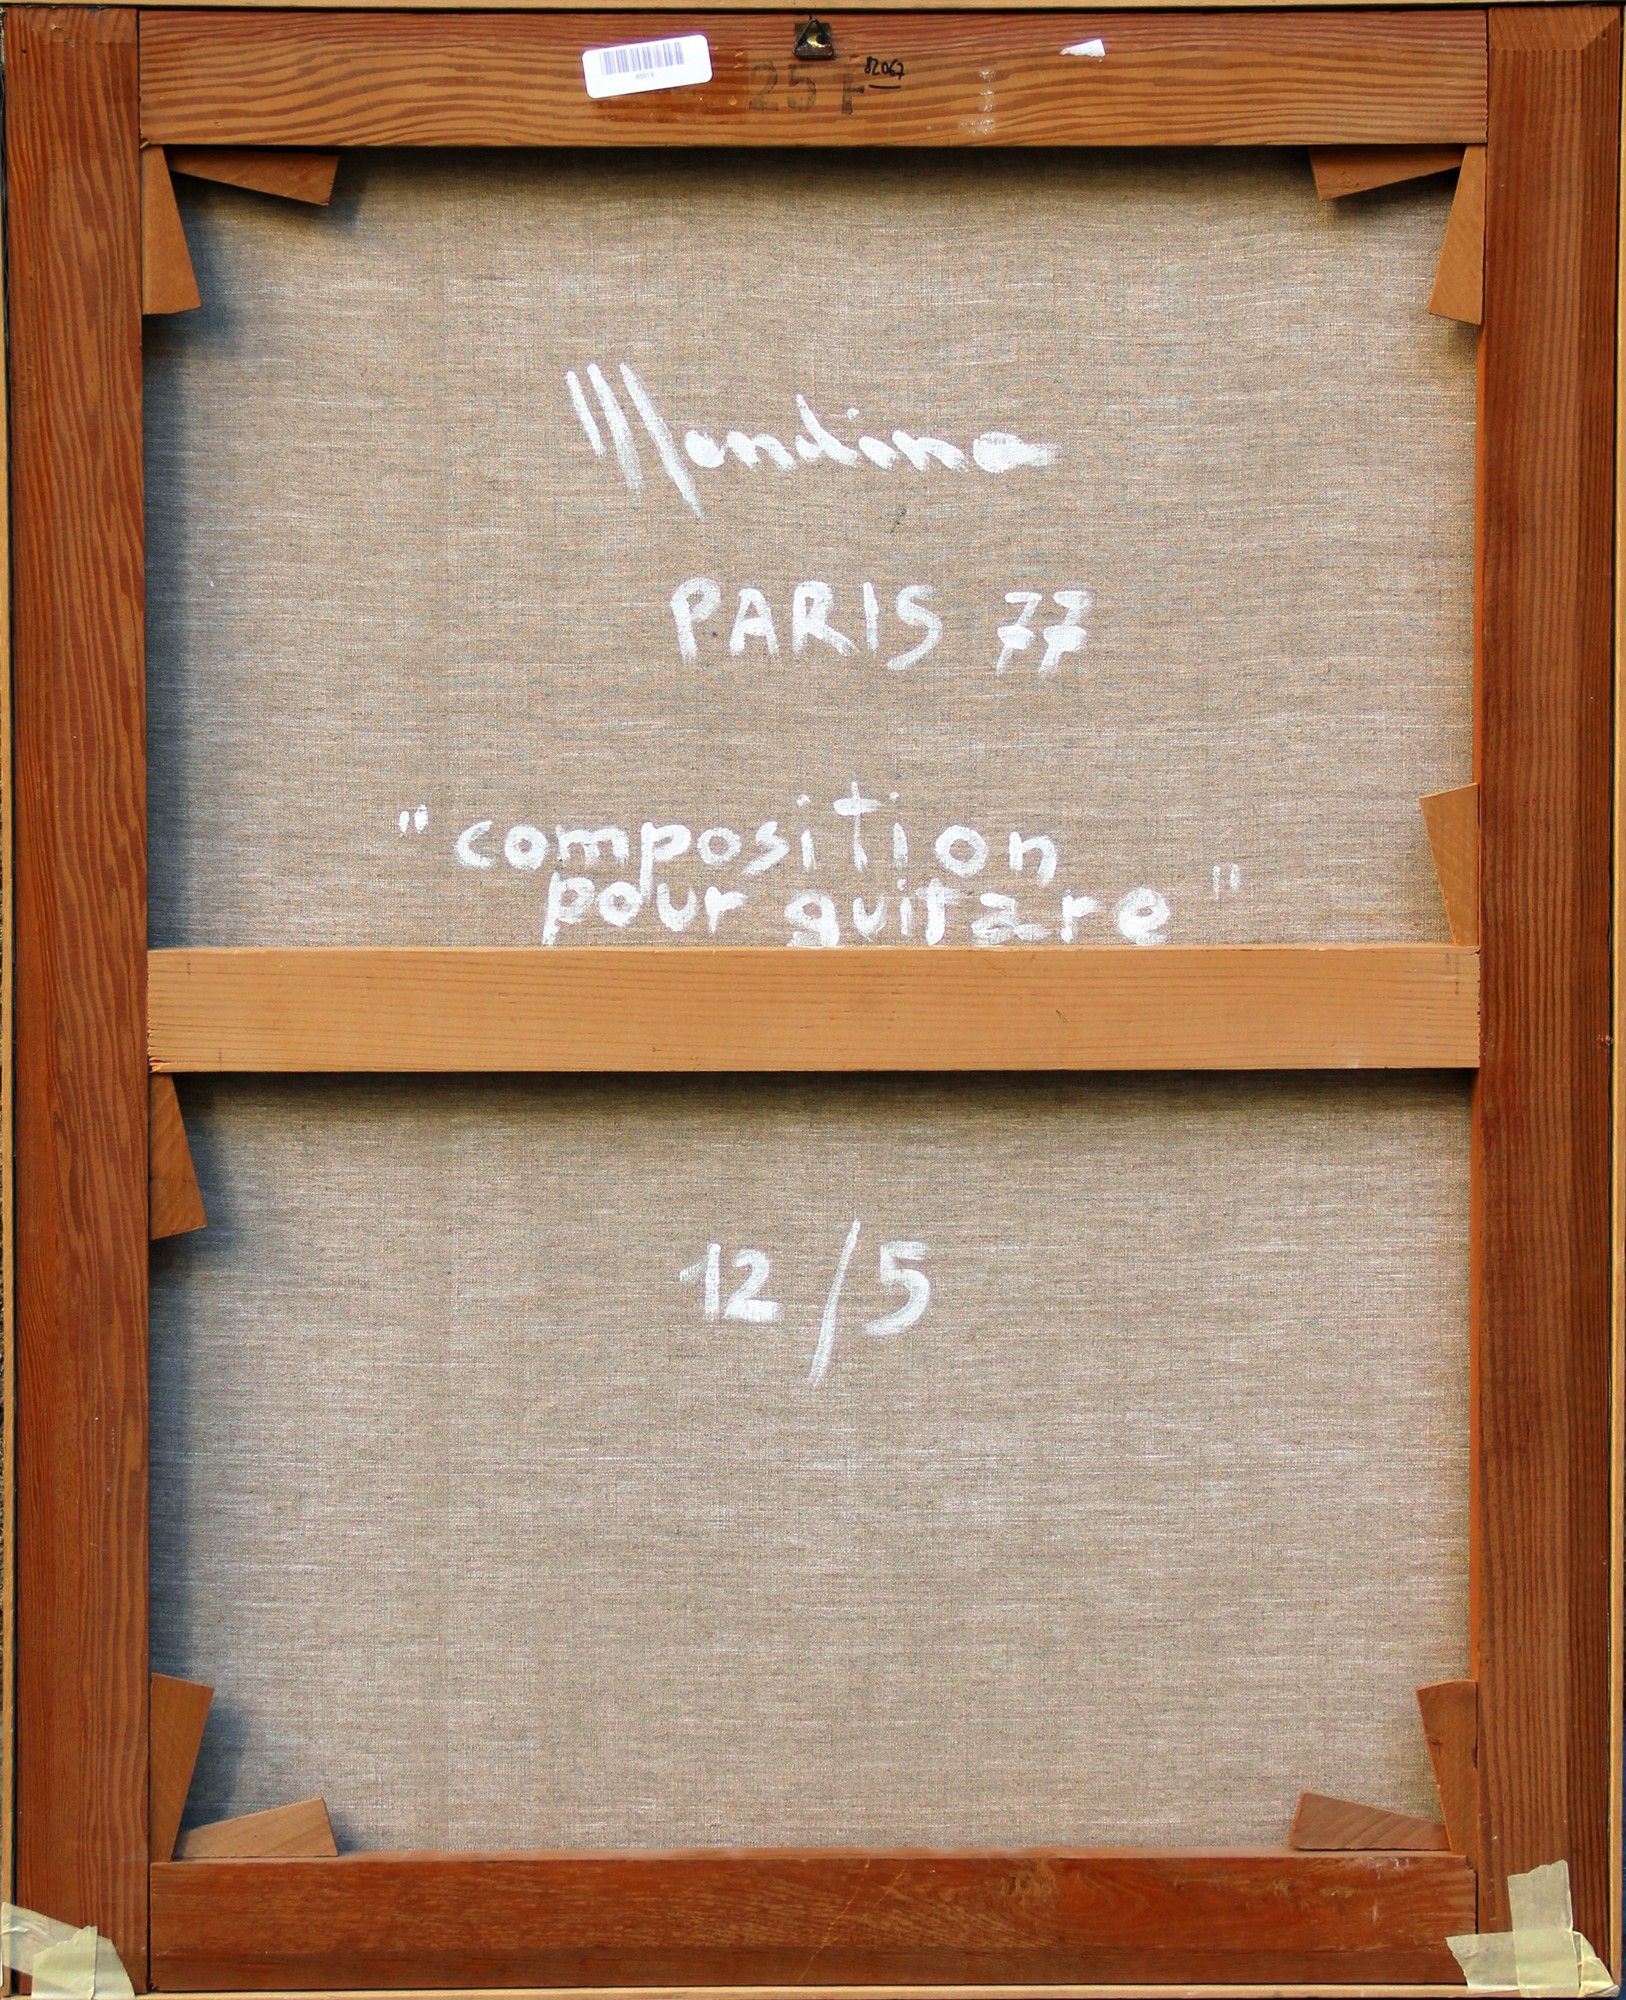 25 F
82067
Mandina
PARIS 77
"composition
pour guitare"
12/5